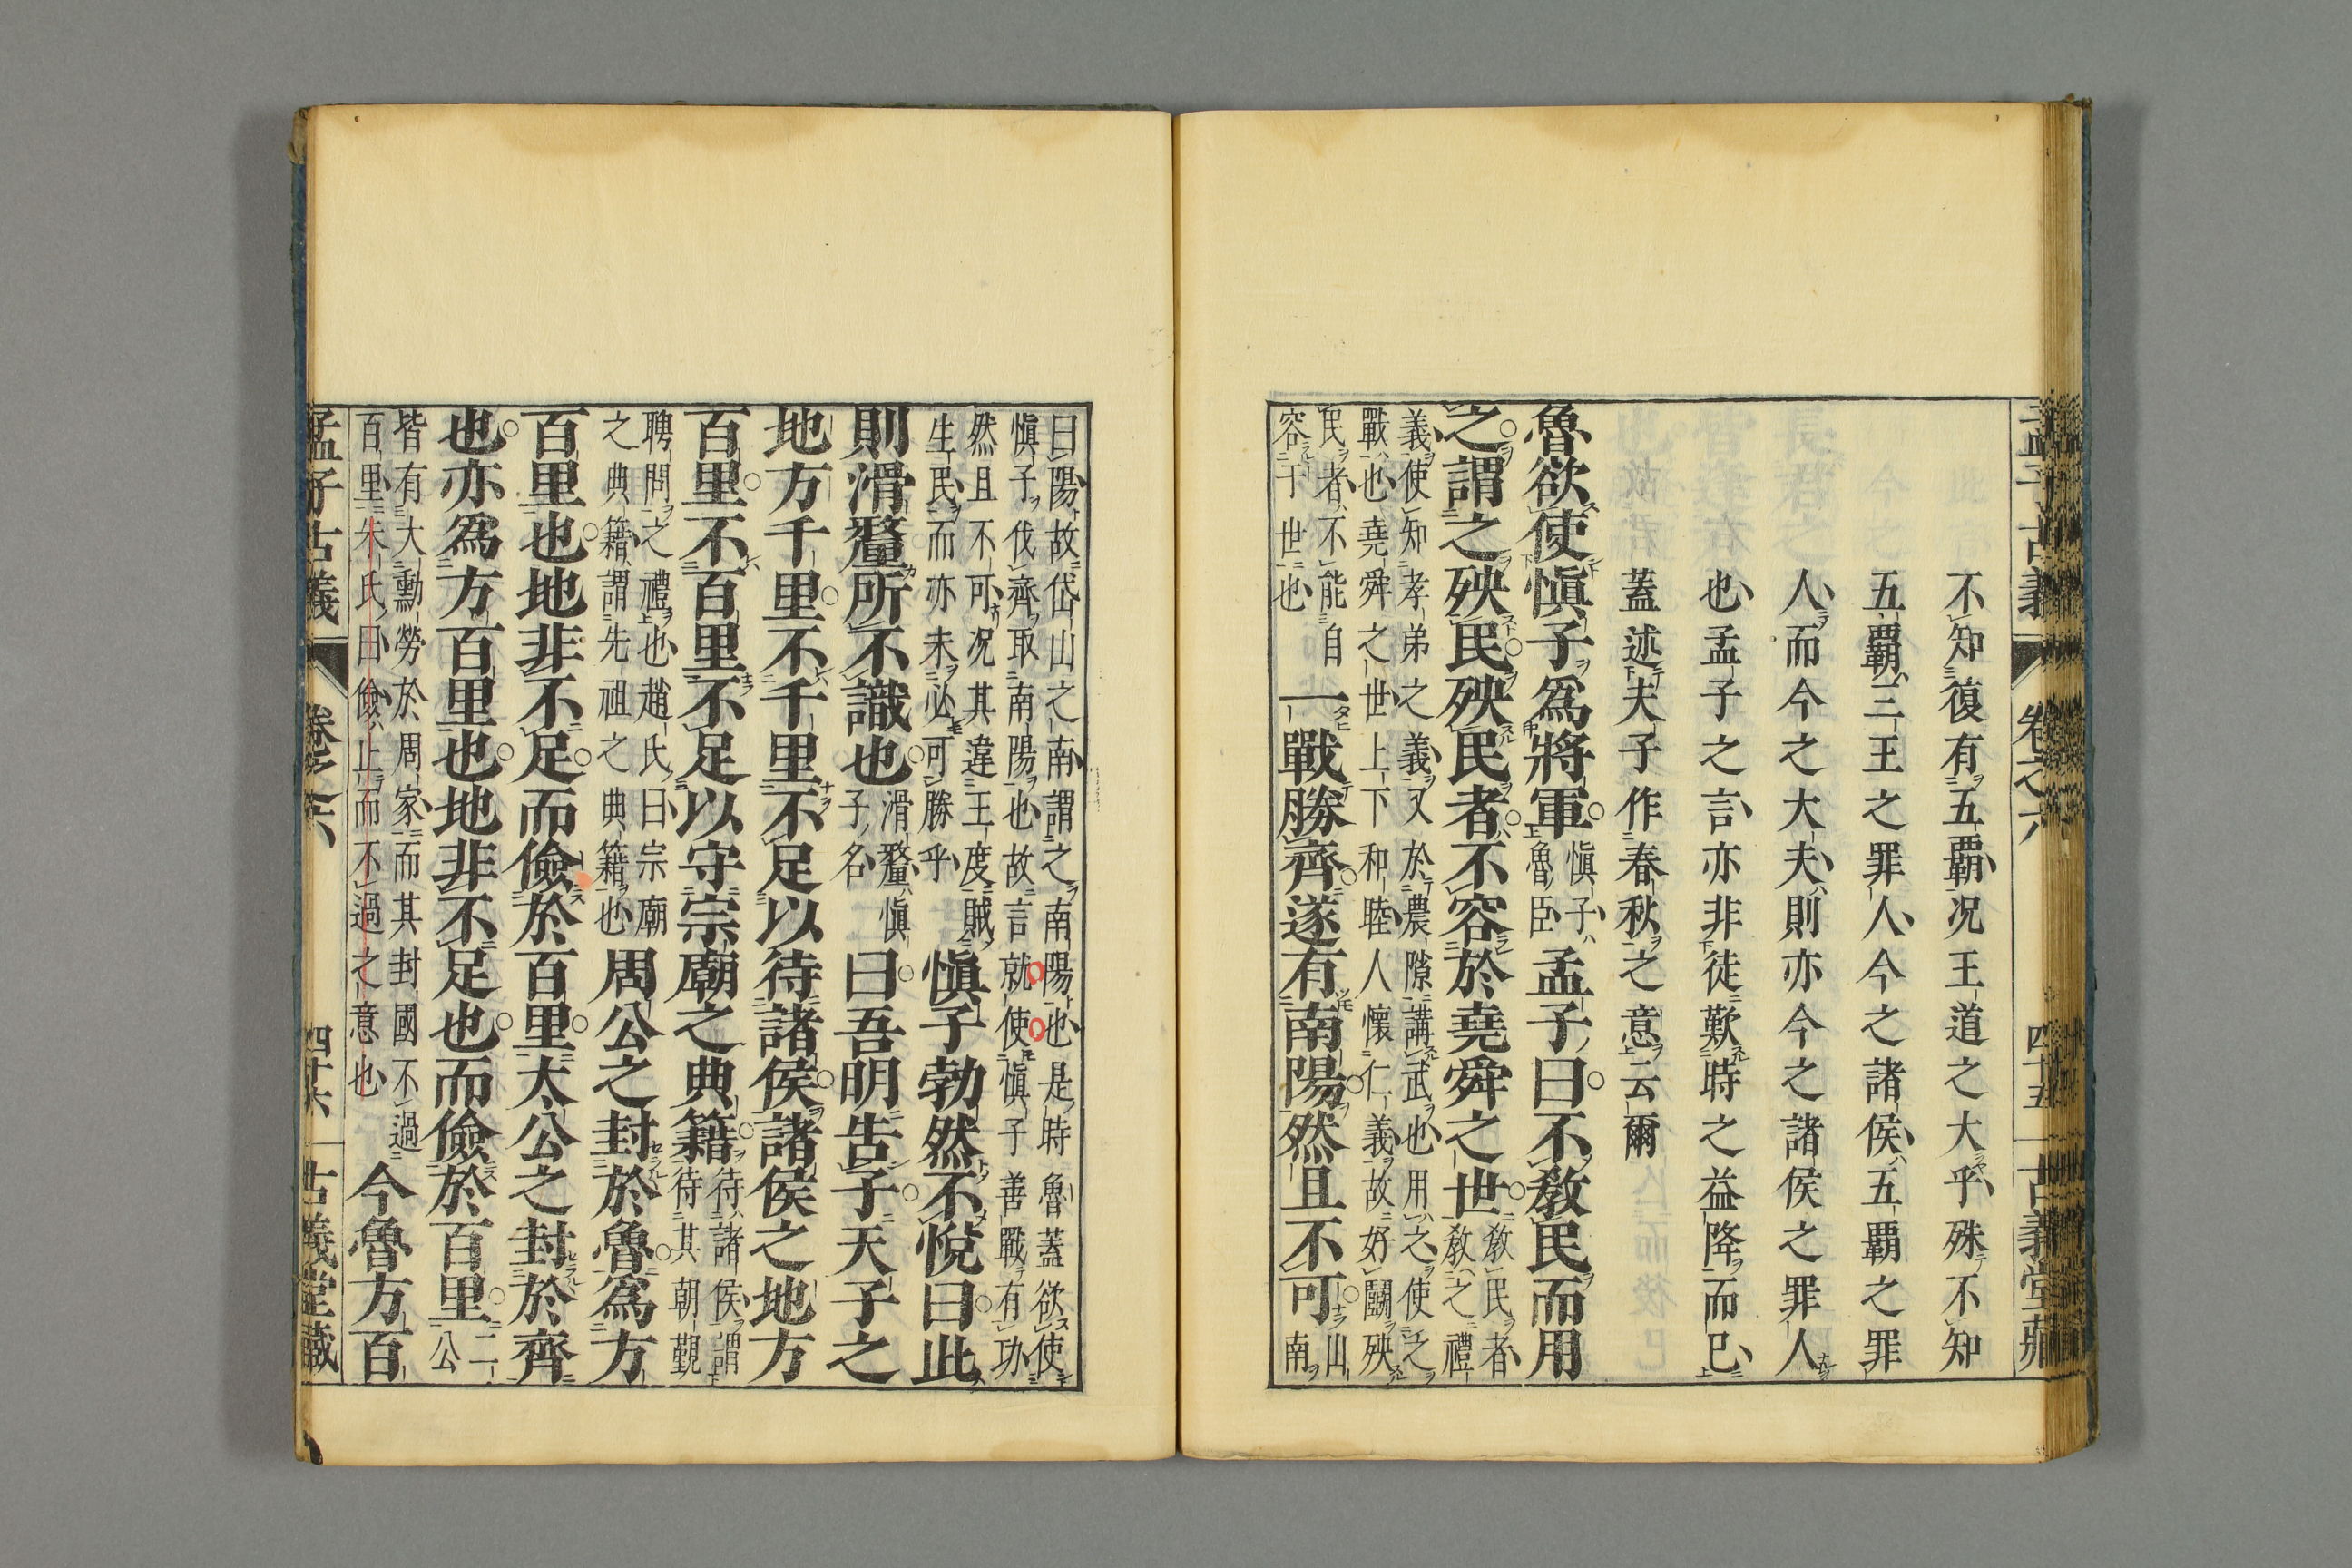 孟子古義 卷之六 四十五 古義堂藏
不知復有五覇况王道之大乎殊不知
五覇三王之罪人今之諸侯五覇之罪
人而今之大夫則亦今之諸侯之罪人
也孟子之言亦非徒歎時之益降而已
蓋述夫子作春秋之意云爾
魯欲使愼子爲將軍
愼子
魯臣
孟子曰不敎民而用
之謂之殃民殃民者不容於堯舜之世
敎民者
敎之禮
義使知孝弟之義又於農隙講武也用之使之
戰也堯舜之世上下和睦人懷仁義故好鬪殃
民者不能自
容于世也
一戰勝齊遂有南陽然且不可
山
南
曰陽故岱山之南謂之南陽也是時魯蓋欲使
愼子伐齊取南陽也故言就使愼子善戰有功
然且不可况其違王度賊
生民而亦未必可勝乎
愼子勃然不悅曰此
則滑釐所不識也
滑釐愼
子名
曰吾明告子天子之
地方千里不千里不足以待諸侯諸侯之地方
百里不百里不足以守宗廟之典籍
待諸侯謂
待其朝覲
聘問之禮也趙氏曰宗廟
之典籍謂先祖之典籍也
周公之封於魯爲方
百里也地非不足而儉於百里太公之封於齊
也亦爲方百里也地非不足也而儉於百里
二
公
皆有大勳勞於周家而其封國不過
百里朱氏曰儉止而不過之意也
今魯方百
孟子古義 卷之六 四十六 古義堂藏